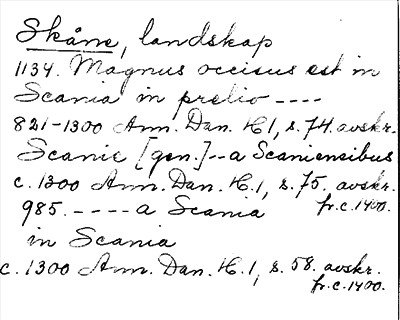 Skåne, landskap
1134. Magnus occisus est in
Scania in prelio ----
821-1300 Ann. Dan. H1, s. 74. avskr.
Scanie [gen.]--a Scaniensibus
c. 1300 Ann. Dan. H.1, s. 75. avskr.
fr. c. 1400.
985. ---- a Scania
in Scania
c. 1300 Ann. Dan. H.1, s. 58. avskr.
fr. c. 1400.